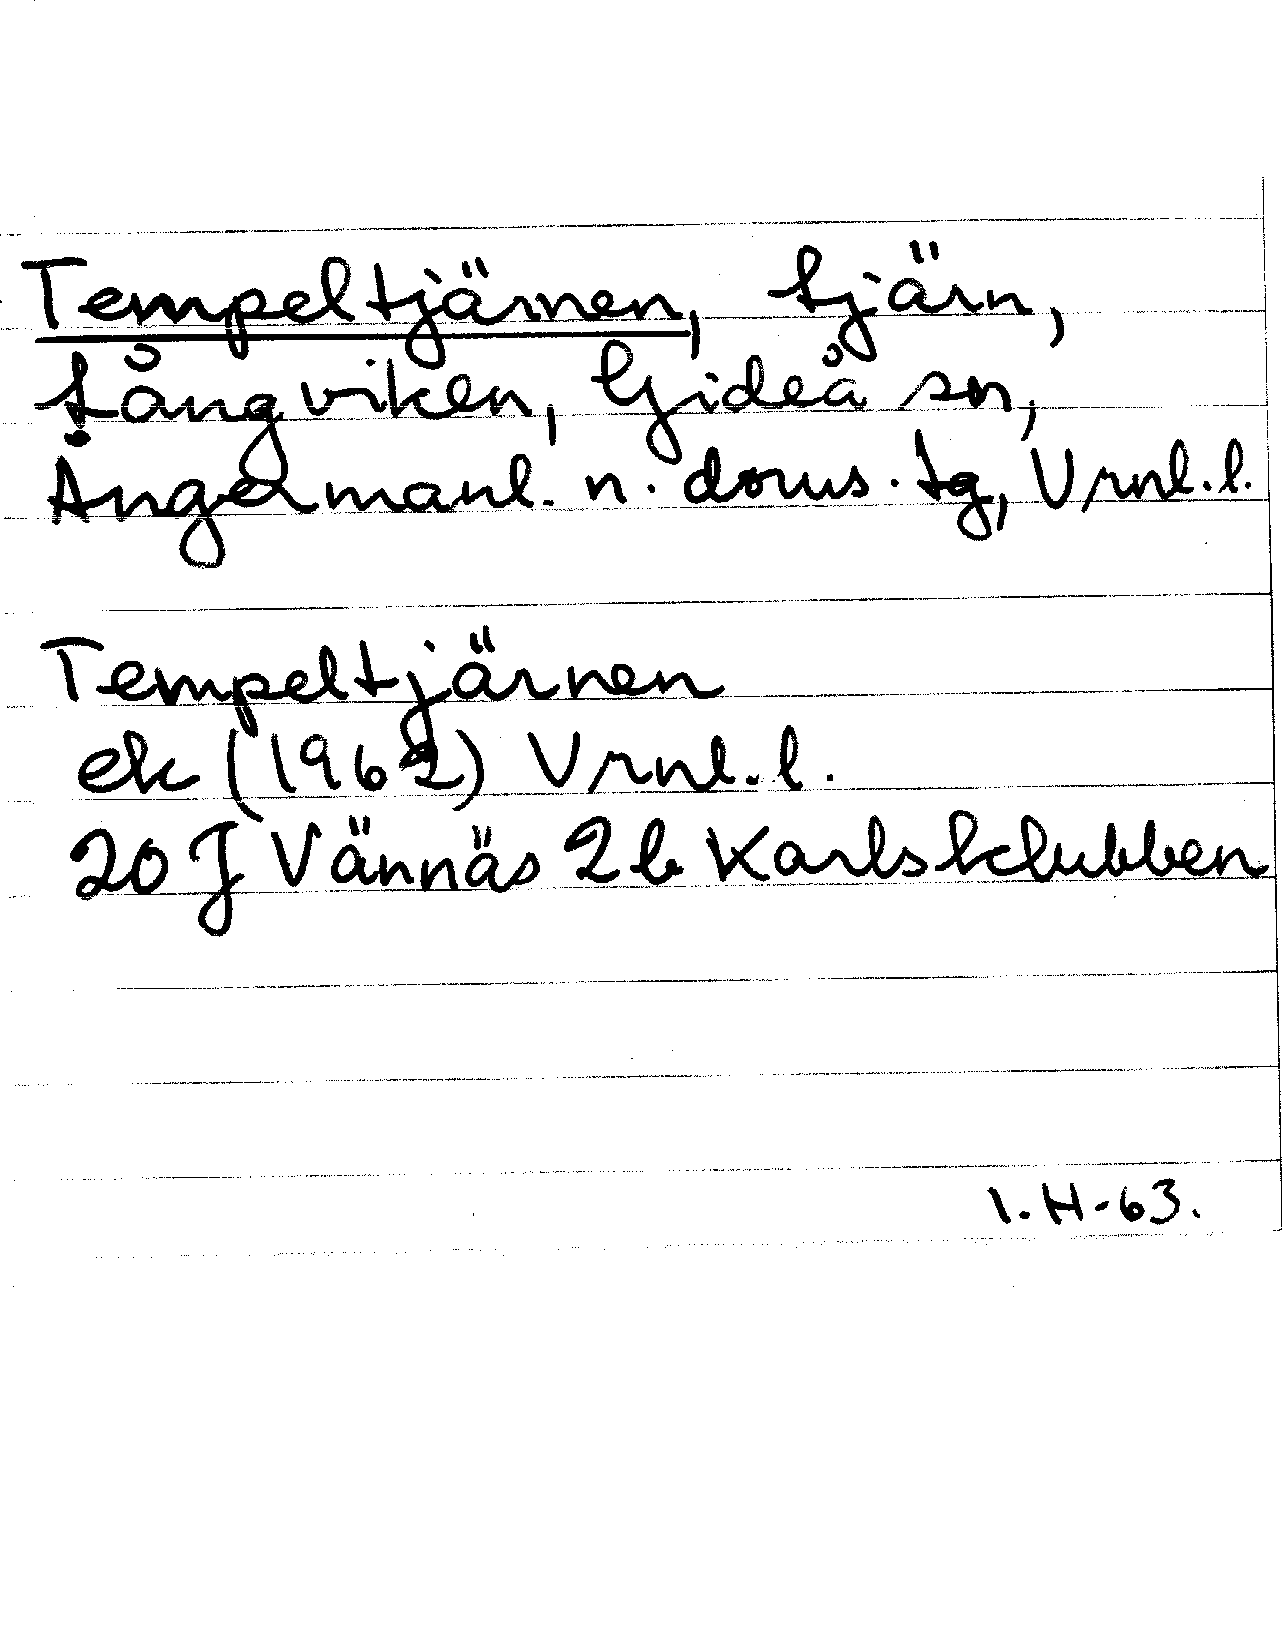 Tempeltjärnen, tjärn,
Långviken, Gideå sn,
Ångermanl. n. doms. tg, Vrnl. l.
Tempeltjärnen
ek (1962) Vrnl. l.
20 J Vännäs 2 b Karlsklubben
I. H-63.